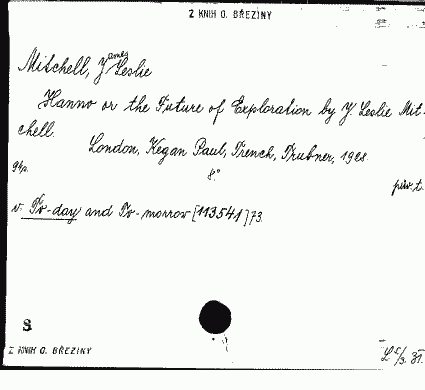 Z KNIH O. BŘEZINY
Mitchell, J ames Leslie
Hanno or the Future of Exploration by J. Leslie Mit-
chell. London, Kegan Paul, Trench, Trubner, 1928.
94p. 8°
pův. t.
v. To-day and To-morrow [113541] 73.
S
Z KNIH O. BŘEZINY
31.